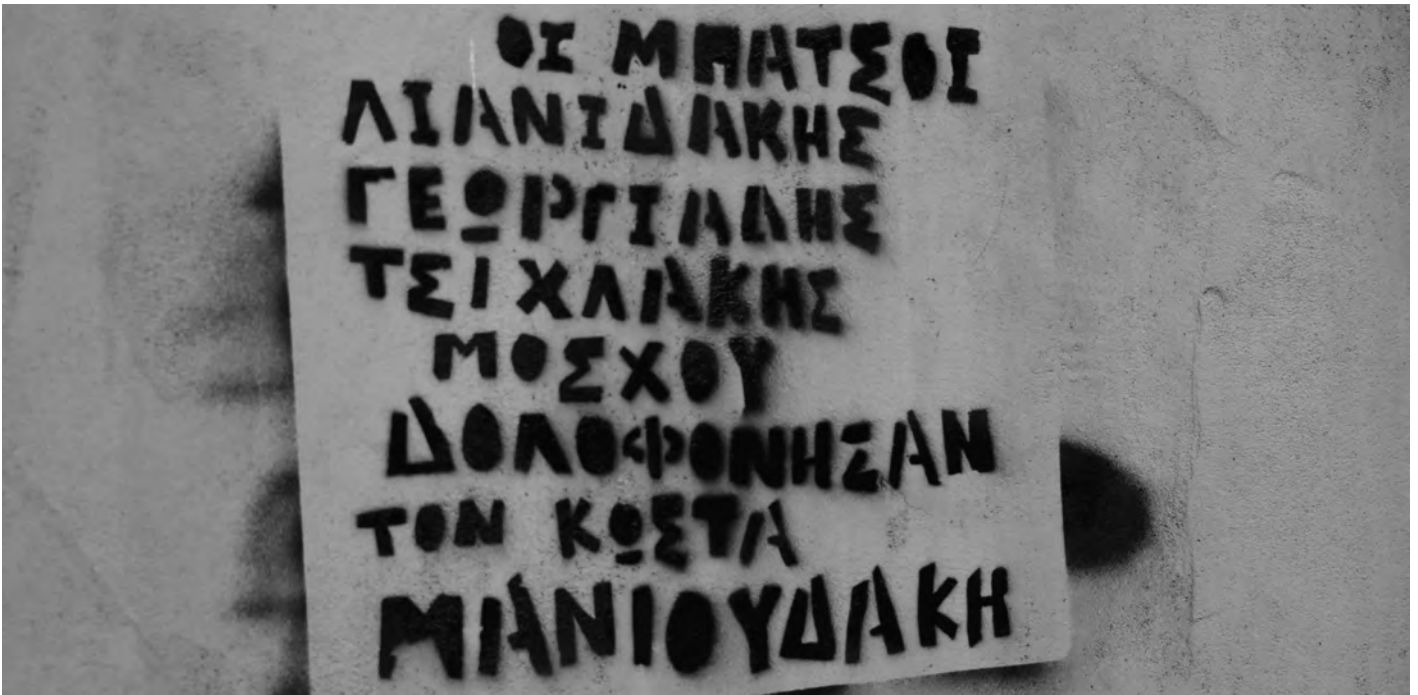 ΟΙ ΜΠΑΤΣΟΙ
ΛΙΑΝΙΔΑΚΗΣ
ΓΕΩΡΓΙΑΔΗΣ
ΤΣΙΧΛΑΚΗΣ
ΜΟΣΧΟΥ
ΔΟΛΟΦΟΝΗΣΑΝ
ΤΟΝ ΚΩΣΤΑ
ΜΑΝΙΟΥΔΑΚΗ